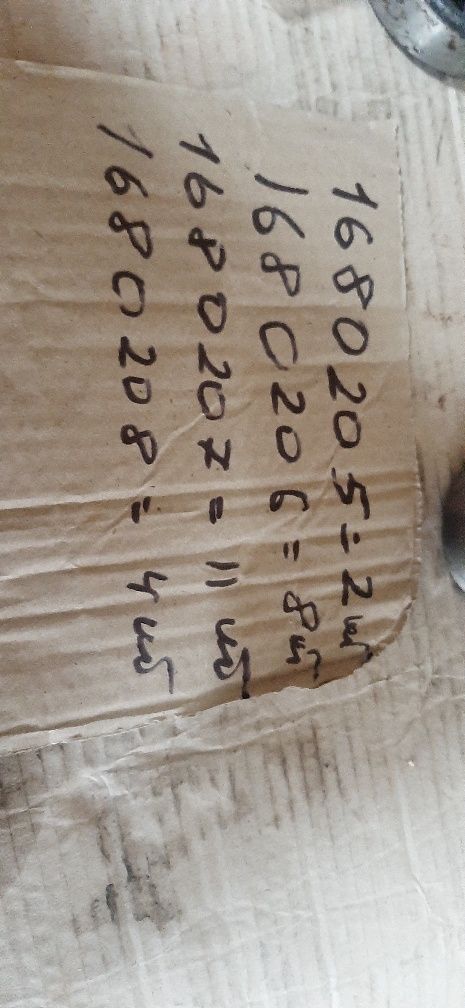 1680205=2шт
1680206=8шт
1680207=11шт
1680208=4шт